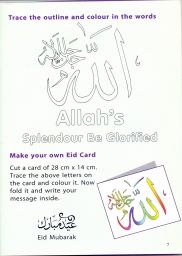 Trace the outline and colour in the words
الله جل جلاله
Allah's
Splendour Be Glorified
Make your own Eid Card
Cut a card of 28 cm x 14 cm.
Trace the above letters on
the card and colour it. Now
fold it and write your
message inside.
الله جل جلاله
عيد مبارك
Eid Mubarak
7